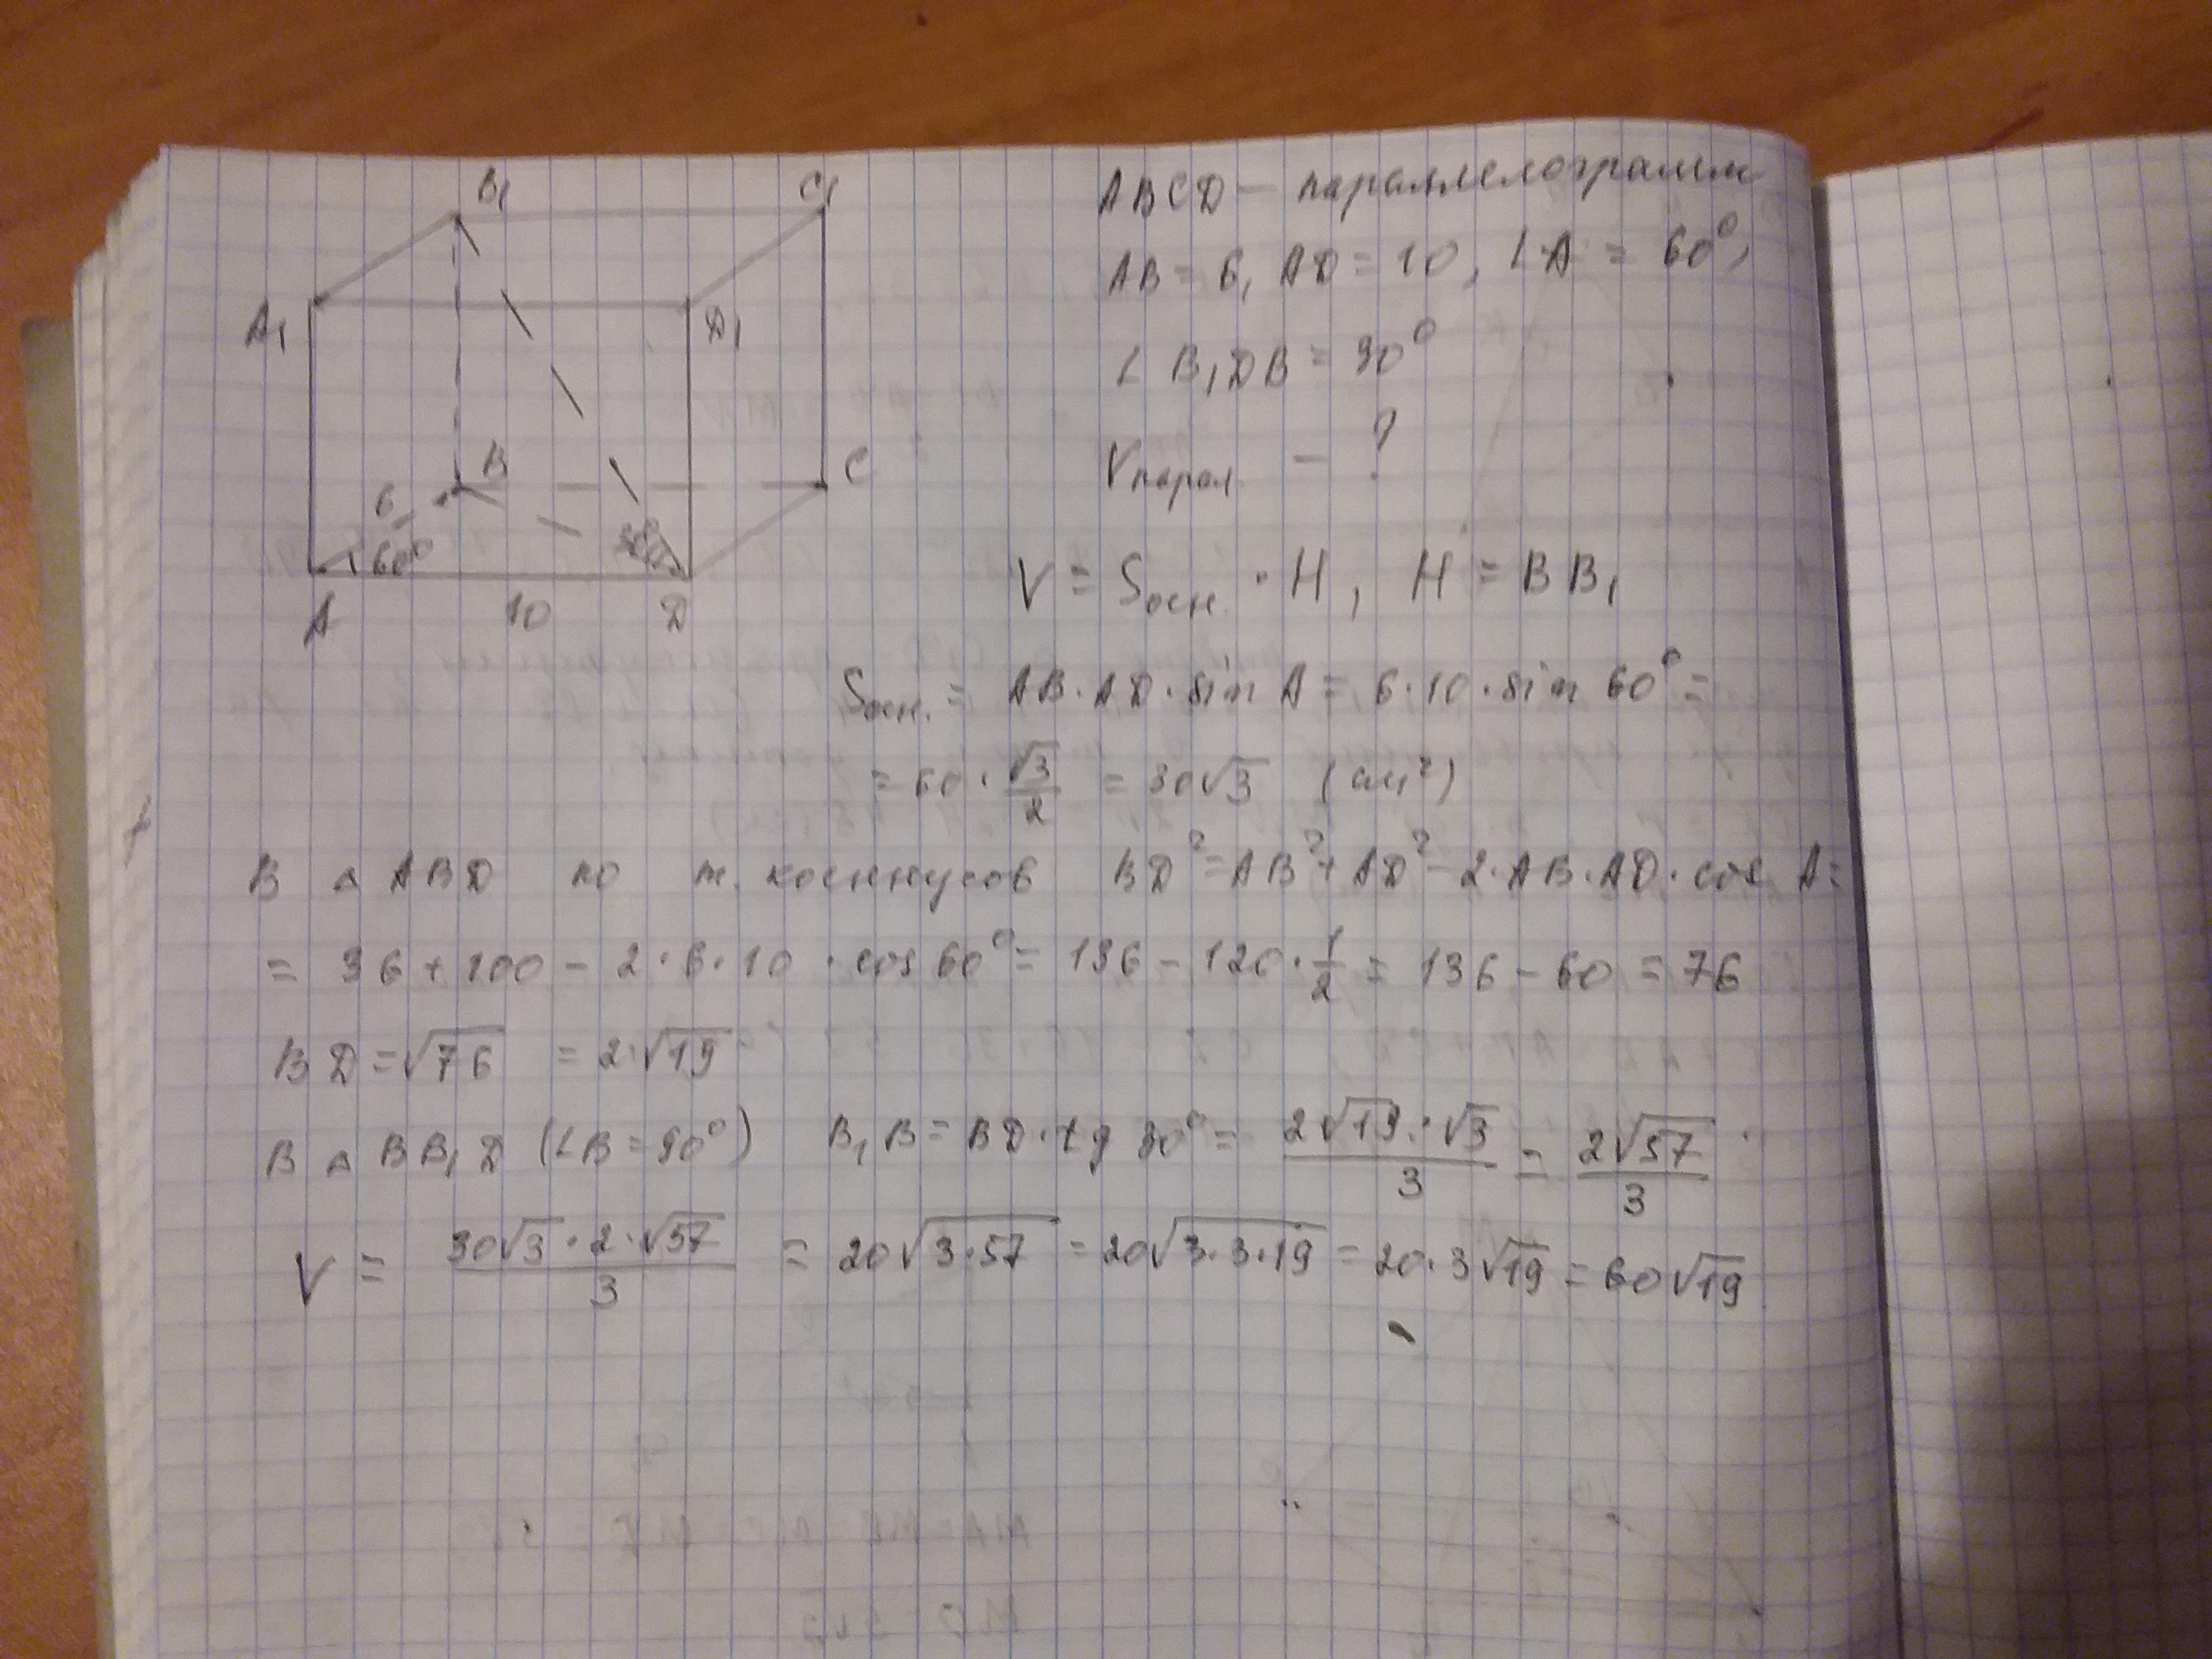 B₁ C₁
A₁ D₁
B C
6
60° 30°
A 10 D
ABCD — параллелограмм
AB = 6, AD = 10, ∠A = 60°,
∠B₁DB = 30°
Vпарал. — ?
V = Sосн. · H, H = BB₁
Sосн. = AB · AD · sin A = 6 · 10 · sin 60° =
= 60 · √3/2 = 30√3 (см²)
В △ABD по т. косинусов BD² = AB² + AD² - 2 · AB · AD · cos A =
= 36 + 100 - 2 · 6 · 10 · cos 60° = 136 - 120 · 1/2 = 136 - 60 = 76
BD = √76 = 2·√19
В △BB₁D (∠B = 90°) B₁B = BD · tg 30° = 2√19 · √3/3 = 2√57/3
V = 30√3 · 2·√57/3 = 20√3·57 = 20√3·3·19 = 20·3√19 = 60√19